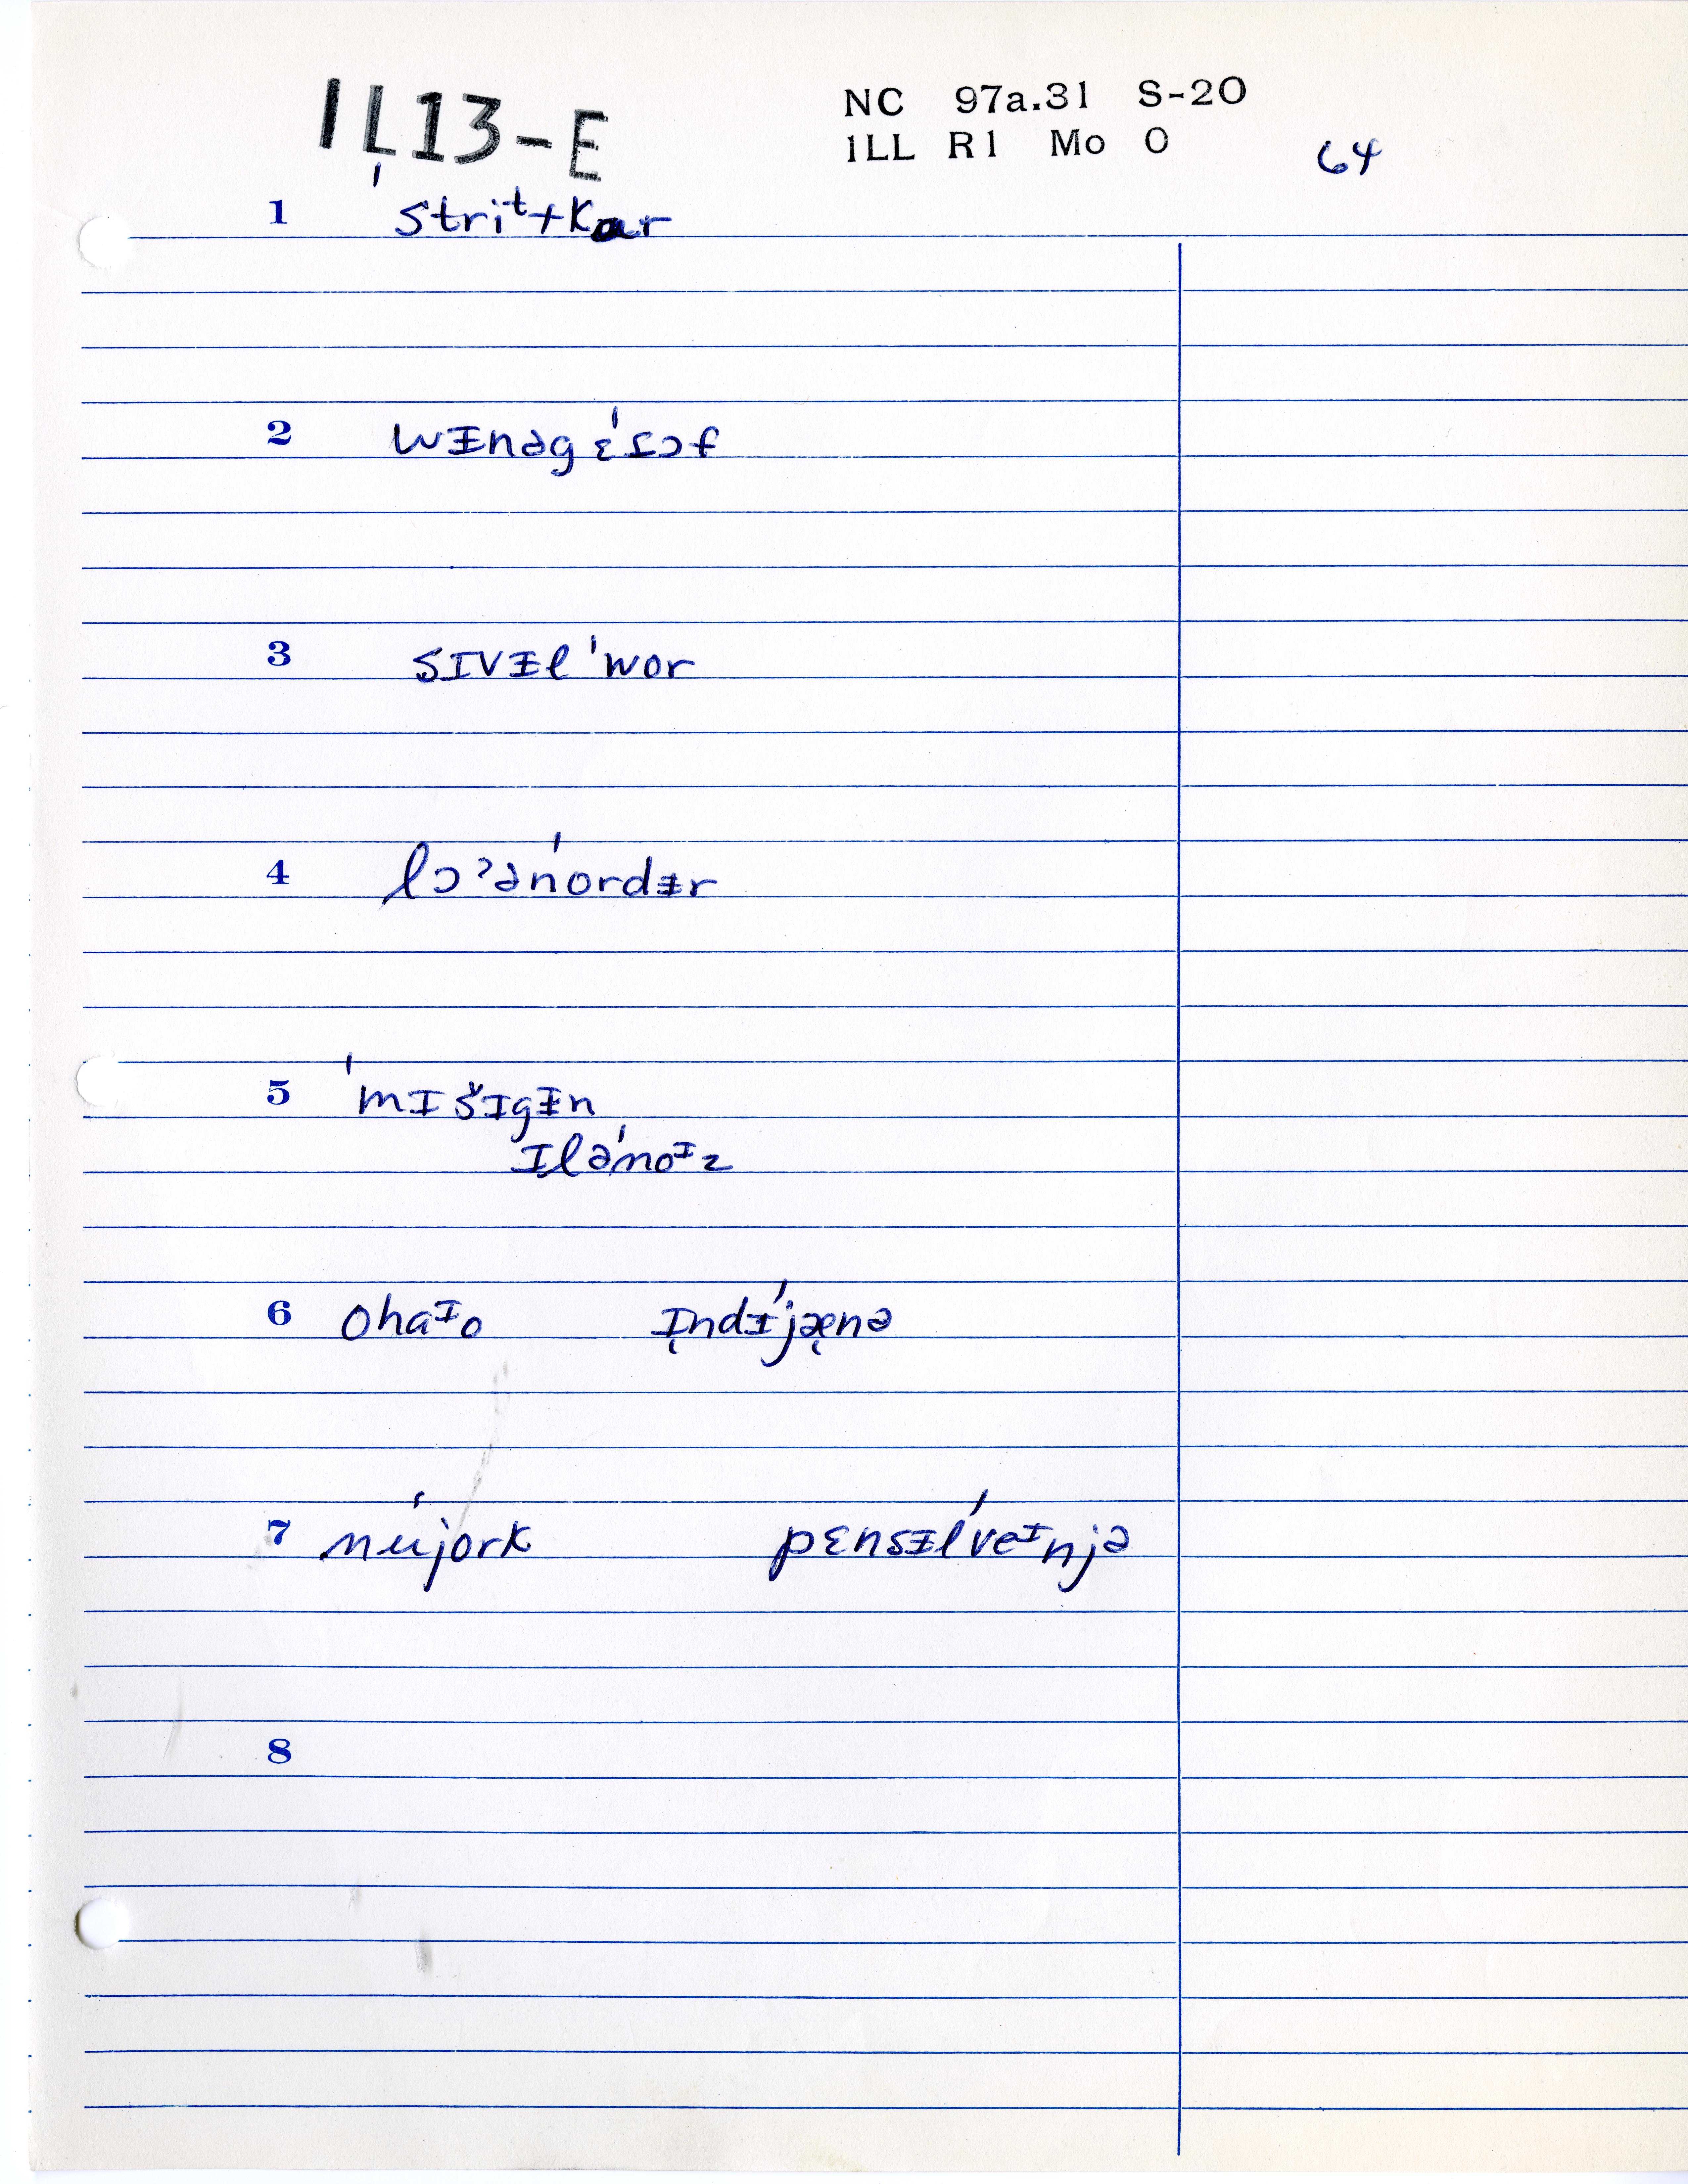 IL13-E
NC 97a.31 S-20
ILL R1 Mo O
64
1 ˈstriᵗ+kar
2 wᵻnəgɛˈsɔf
3 sɪvᵻl ˈwor
4 lɔˀənˈordᵻr
5 ˈmɪšɪgᵻn
ɪləˈnoᶦz
6 ohaᶦo ɪndᵻˈjænə
7 nuˈjork pɛnsᵻlˈveᶦnjə
8